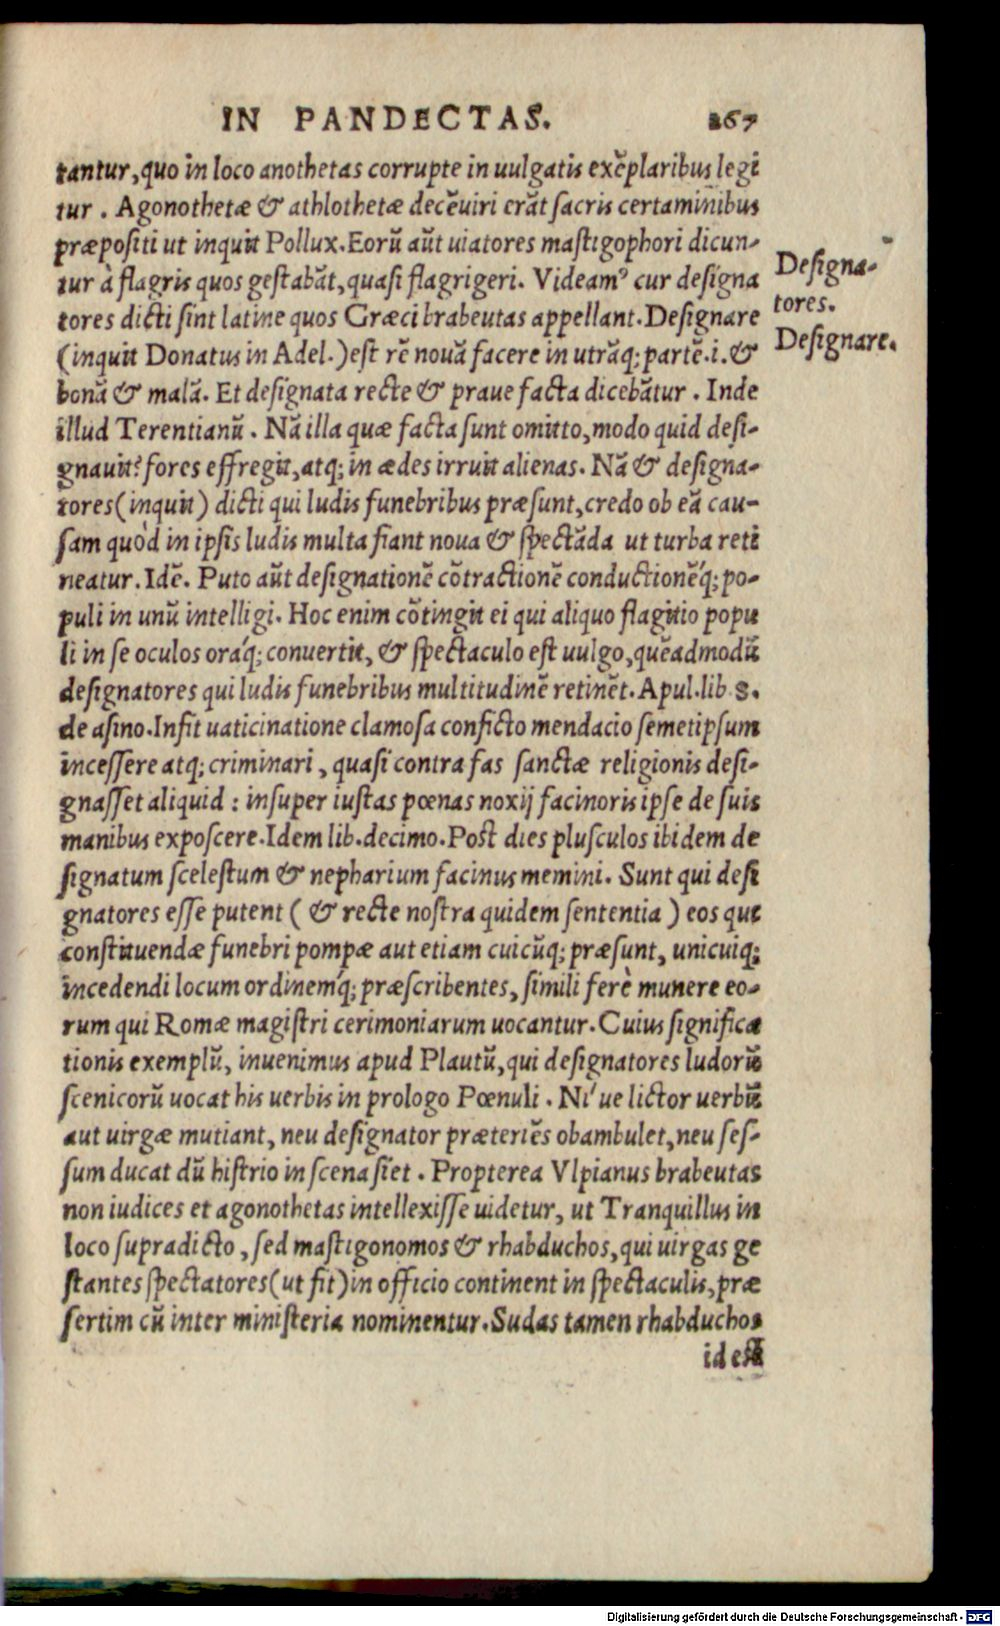 IN PANDECTAS. 267
tantur, quo in loco anothetas corrupte in uulgatis exẽplaribus legi
tur . Agonothetæ & athlothetæ decẽuiri erãt sacris certaminibus
præpositi ut inquit Pollux. Eorũ aũt uiatores mastigophori dicun-
tur à flagris quos gestabãt, quasi flagrigeri. Videamꝰ cur designa
tores dicti sint latine quos Græci brabeutas appellant. Designare
(inquit Donatus in Adel.) est rẽ nouã facere in utrãq; partẽ .i. &
bonã & malã. Et designata recte & praue facta dicebãtur . Inde
illud Terentianũ . Nã illa quæ facta sunt omitto, modo quid desi-
gnauit? fores effregit, atq; in ædes irruit alienas. Nã & designa-
tores (inquit) dicti qui ludis funebribus præsunt, credo ob eã cau-
sam quòd in ipsis ludis multa fiant noua & spectãda ut turba reti
neatur. Idẽ. Puto aũt designationẽ cõtractionẽ conductionẽq́; po-
puli in unũ intelligi. Hoc enim cõtingit ei qui aliquo flagitio popu
li in se oculos oráq; conuertit, & spectaculo est uulgo, quẽadmodũ
designatores qui ludis funebribus multitudinẽ retinẽt. Apul. lib 8.
de asino. Infit uaticinatione clamosa conficto mendacio semetipsum
incessere atq; criminari, quasi contra fas sanctæ religionis desi-
gnasset aliquid : insuper iustas pœnas noxij facinoris ipse de suis
manibus exposcere. Idem lib. decimo. Post dies plusculos ibidem de
signatum scelestum & nepharium facinus memini. Sunt qui desi
gnatores esse putent ( & recte nostra quidem sententia ) eos qui
constituendæ funebri pompæ aut etiam cuicũq; præsunt, unicuiq;
incedendi locum ordinemq́; præscribentes, simili ferè munere eo-
rum qui Romæ magistri cerimoniarum uocantur. Cuius significa
tionis exemplũ, inuenimus apud Plautũ, qui designatores ludorũ
scenicorũ uocat his uerbis in prologo Pœnuli . Ni' ue lictor uerbũ
aut uirgæ mutiant, neu designator præteriẽs obambulet, neu ses-
sum ducat dũ histrio in scena siet . Propterea Vlpianus brabeutas
non iudices et agonothetas intellexisse uidetur, ut Tranquillus in
loco supradicto, sed mastigonomos & rhabduchos, qui uirgas ge
stantes spectatores (ut fit) in officio continent in spectaculis, præ
sertim cũ inter ministeria nominentur. Sudas tamen rhabduchos
id est
Designa-
tores.
Designare.
Digitalisierung gefördert durch die Deutsche Forschungsgemeinschaft - DFG